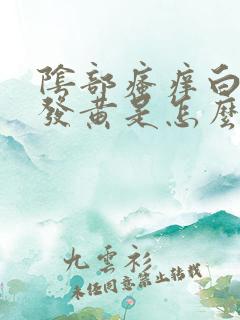 陰部瘙痒白
發黃是怎麼
九雲衫
未經同意禁止轉載